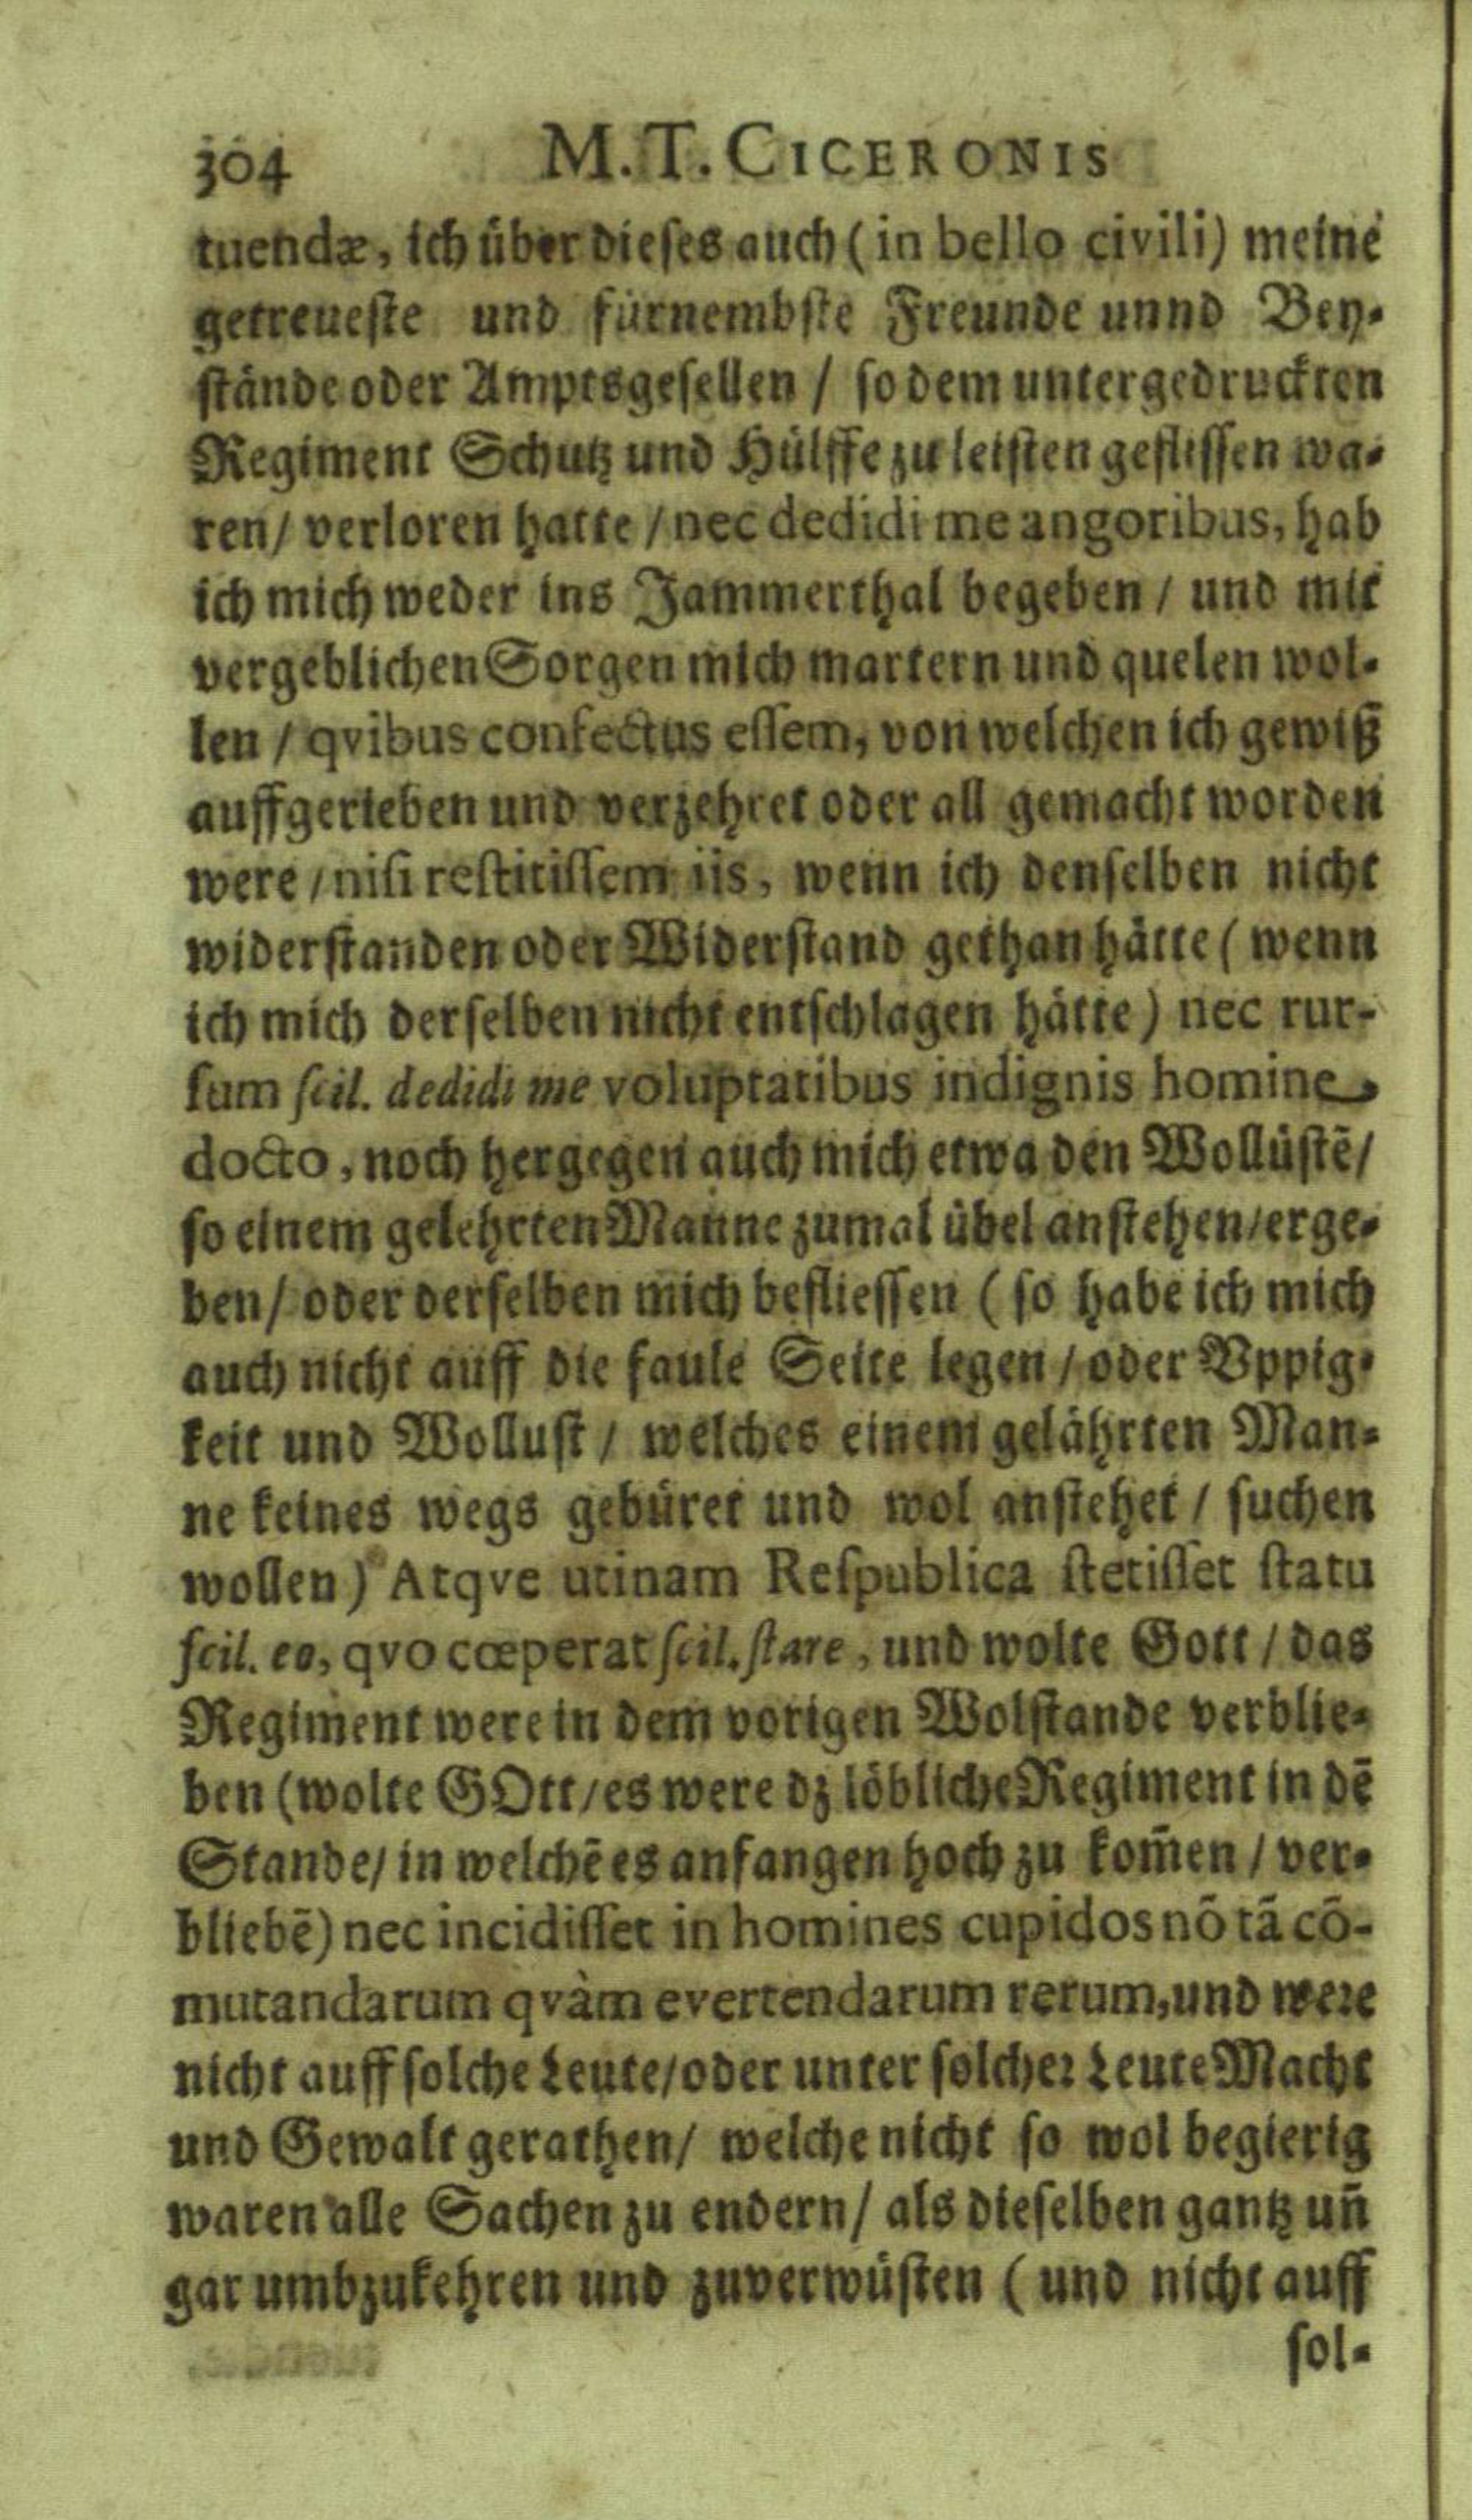 304 M. T. CICERONIS
tuendæ, ich über dieses auch (in bello civili) meine
getreueste und fürnembste Freunde unnd Bey-
stände oder Amptsgesellen / so dem untergedruckten
Regiment Schutz und Hülffe zu leisten geflissen wa-
ren / verloren hatte / nec dedidi me angoribus, hab
ich mich weder ins Jammerthal begeben / und mit
vergeblichen Sorgen mich martern und quelen wol-
len / qvibus confectus essem, von welchen ich gewiß
auffgerieben und verzehret oder all gemacht worden
were / nisi restitissem iis, wenn ich denselben nicht
widerstanden oder Widerstand gethan hätte ( wenn
ich mich derselben nicht entschlagen hätte ) nec rur-
sum scil. dedidi me voluptatibus indignis homine
docto, noch hergegen auch mich etwa den Wollüstē /
so einem gelehrten Manne zumal übel anstehen / erge-
ben / oder derselben mich befliessen ( so habe ich mich
auch nicht auff die faule Seite legen / oder Vppig-
keit und Wollust / welches einem gelährten Man-
ne keines wegs gebüret und wol anstehet / suchen
wollen ) Atqve utinam Respublica stetisset statu
scil. eo, qvo cœperat scil. stare, und wolte Gott / das
Regiment were in dem vorigen Wolstande verblie-
ben (wolte GOtt / es were dz löbliche Regiment in dē
Stande / in welchē es anfangen hoch zu kom̄en / ver-
bliebē) nec incidisset in homines cupidos nō tā cō-
mutandarum qvàm evertendarum rerum, und were
nicht auff solche Leute / oder unter solcher Leute Macht
und Gewalt gerathen / welche nicht so wol begierig
waren alle Sachen zu endern / als dieselben gantz uñ
gar umbzukehren und zuverwüsten ( und nicht auff
sol-